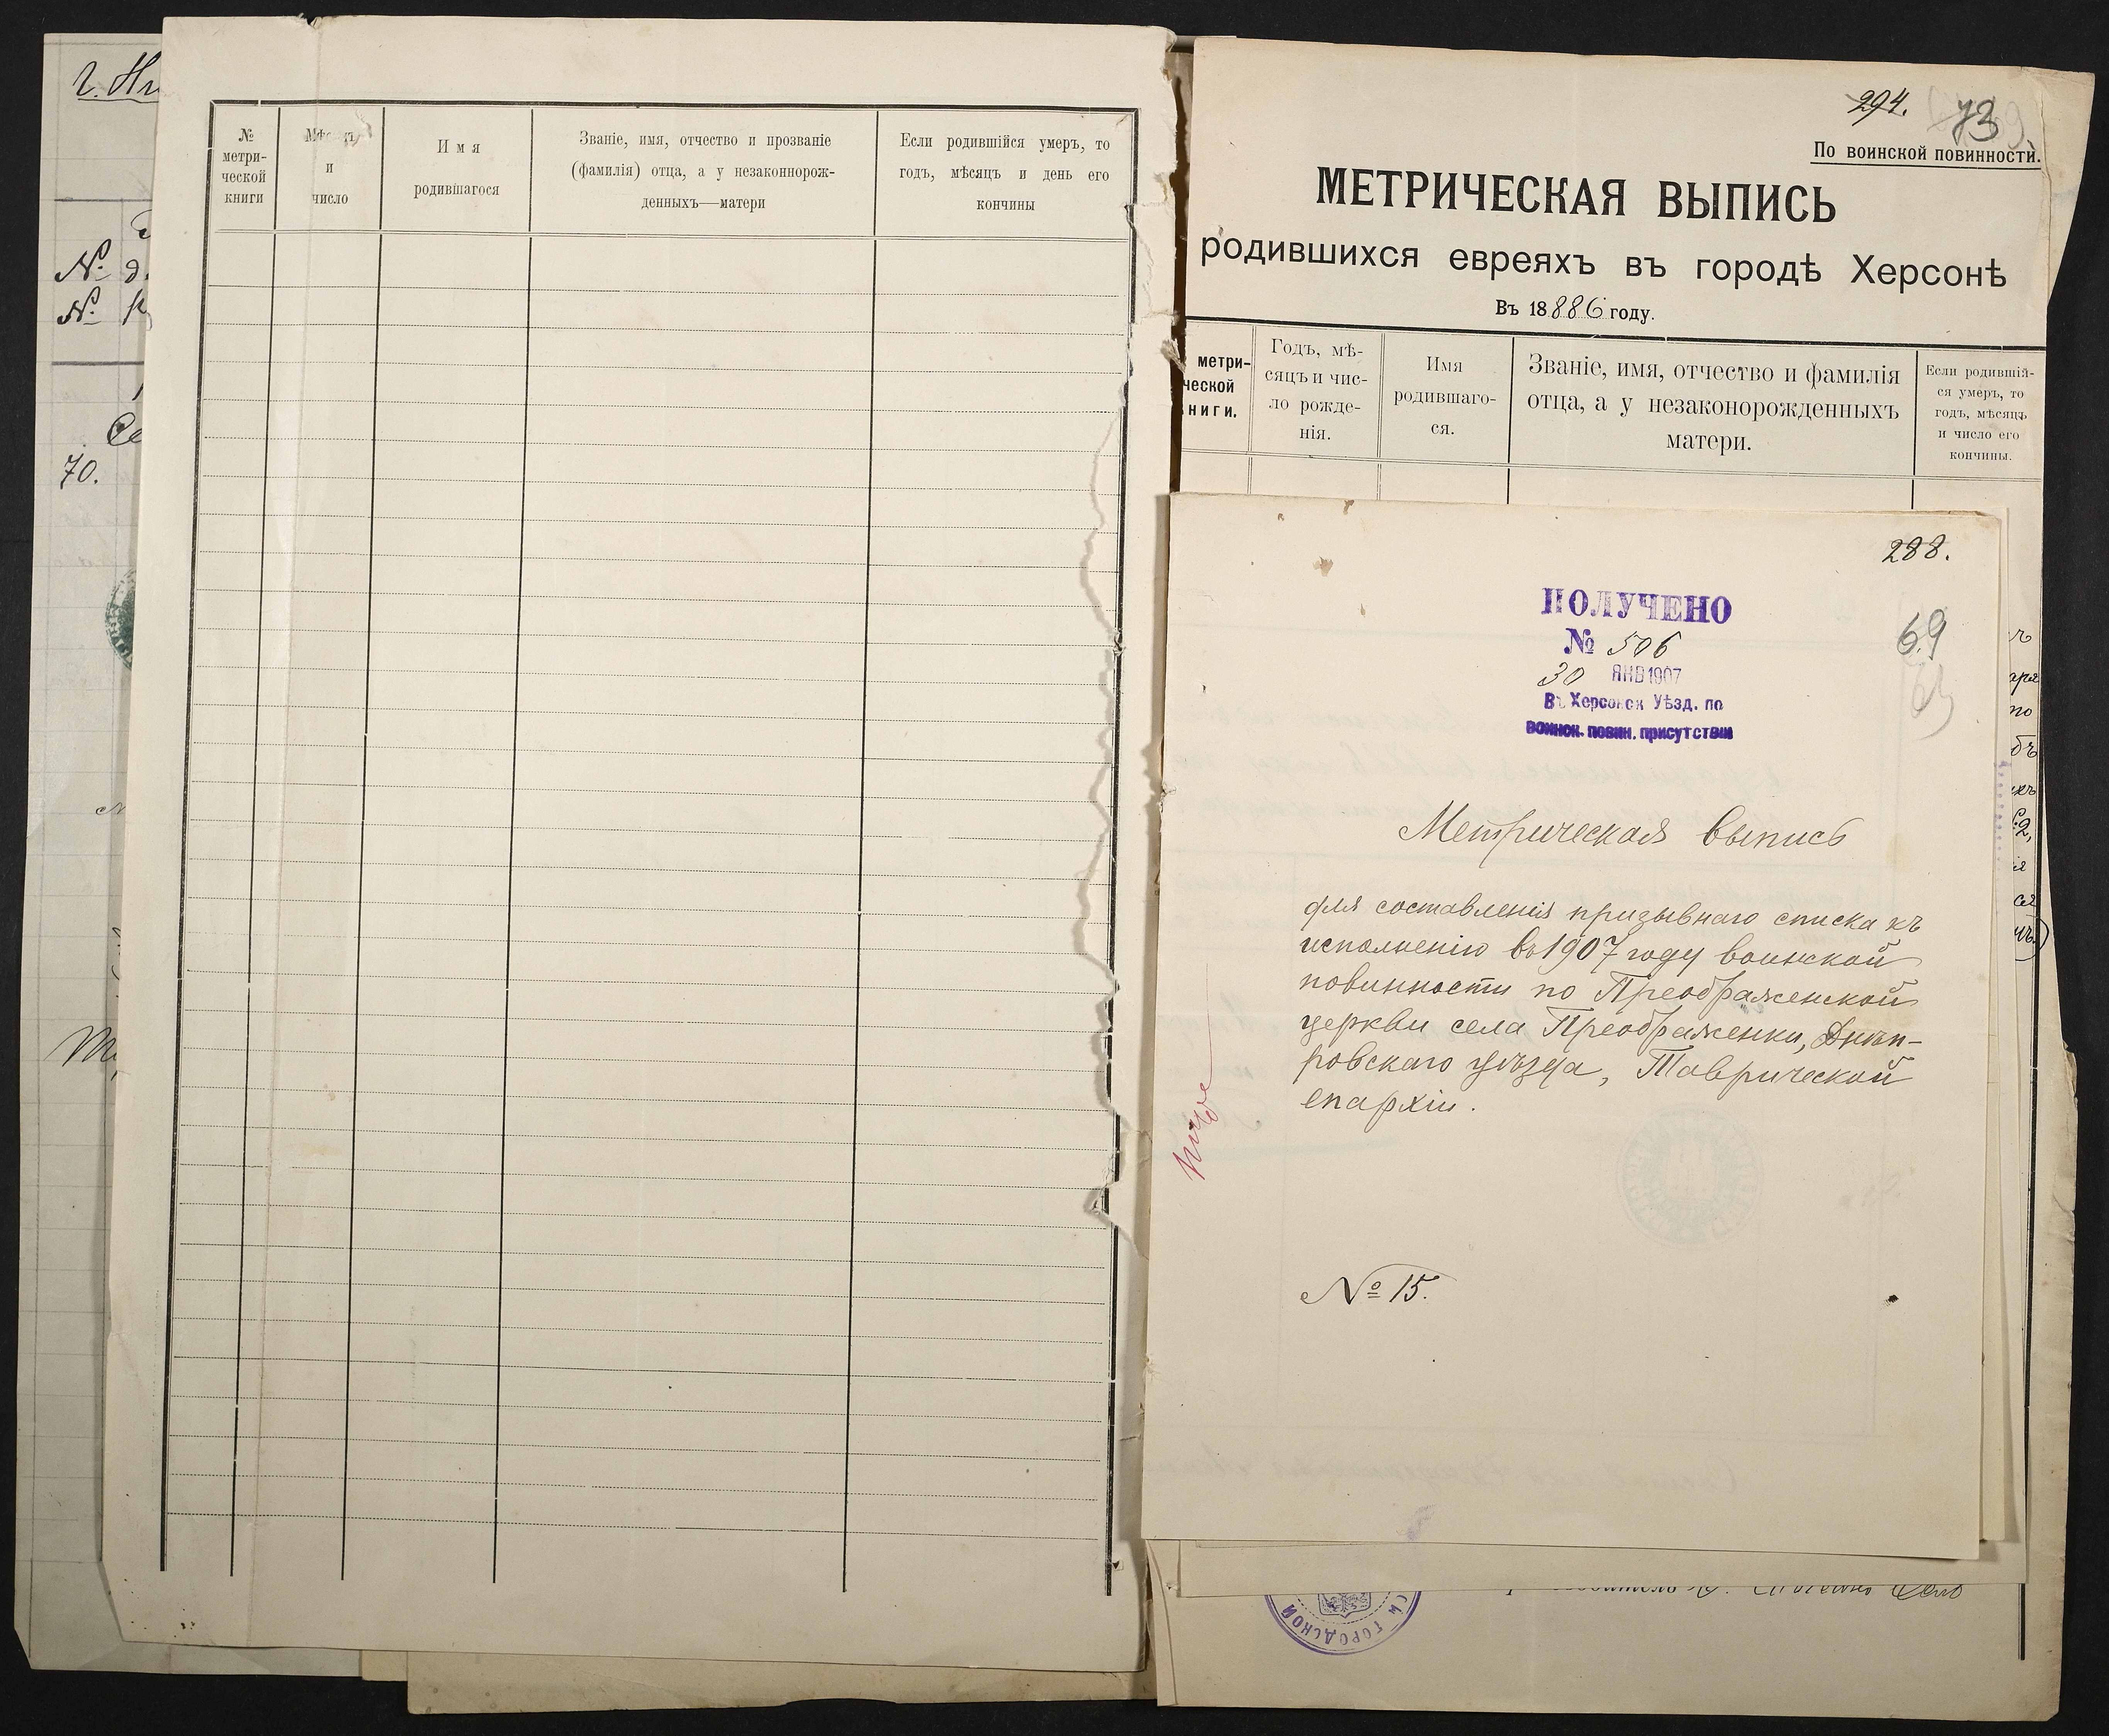 г. Ни
№ д.
№
Се
70.
№ метри- ческой книги
Мѣсяцъ и число
Имя родившагося
Званіе, имя, отчество и прозваніе
(фамилія) отца, а у незаконнорож-
денныхъ—матери
Если родившійся умеръ, то
годъ, мѣсяцъ и день его
кончины
294. 73
По воинской повинности.
МЕТРИЧЕСКАЯ ВЫПИСЬ
родившихся евреяхъ въ городѣ Херсонѣ
Въ 18886 году.
метри-
ческой
ниги.
Годъ, мѣ-
сяцъ и чис-
ло рожде-
нія.
Имя
родившаго-
ся.
Званіе, имя, отчество и фамилія
отца, а у незаконорожденныхъ
матери.
Если родившій-
ся умеръ, то
годъ, мѣсяцъ
и число его
кончины.
288.
69
ПОЛУЧЕНО
№ 506
30 ЯНВ 1907
Въ Херсонск Уѣзд. по
воинск. повин. присутствіи
Метрическая выпись
для составленія призывнаго списка къ
исполненію въ 1907 году воинской
повинности по Преображенской
церкви села Преображенки, Днѣп-
ровскаго уѣзда, Таврической
епархіи.
№ 15.
ГОРОДСКОЙ